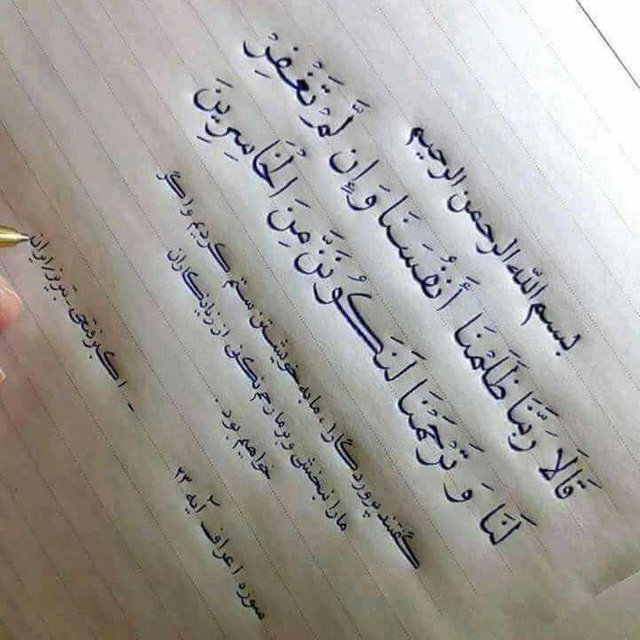 بسم الله الرحمن الرحیم
قَالَا رَبَّنَا ظَلَمْنَا أَنْفُسَنَا وَإِن لَّمْ تَغْفِرْ
لَنَا وَ تَرْحَمْنَا لَنَكُونَنَّ مِنَ الْخَاسِرِينَ
گفتند پروردگارا، ما به خویشتن ستم کردیم و اگر
ما را نبخشی و بر ما رحم نکنی از زیانکاران
خواهیم بود.
سوره اعراف آیه ۲۳
تبریز ایران